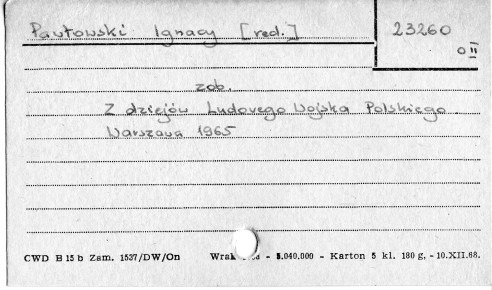 Pawłowski Ignacy [red.] 23260
0 II
zob.
Z dziejów Ludowego Wojska Polskiego.
Warszawa 1965
CWD B 15 b Zam. 1537/DW/On - 5.040.000 - Karton 5 kl. 180 g. - 10.XII.68.